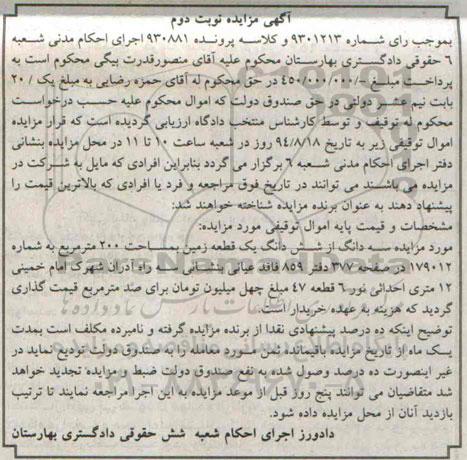 آگهی مزایده نوبت دوم
بموجب رای شماره ۹۳۰۱۲۱۳ و کلاسه پرونده ۹۳۰۸۸۱ اجرای احکام مدنی شعبه
۶ حقوقی دادگستری بهارستان محکوم علیه آقای منصورقدرت بیگی محکوم است به
پرداخت مبلغ ۴۵۰/۰۰۰/۰۰۰/- در حق محکوم له آقای حمزه رضایی به مبلغ یک / ۲۰
بابت نیم عشر دولتی در حق صندوق دولت که اموال محکوم علیه حسب درخواست
محکوم له توقیف و توسط کارشناس منتخب دادگاه ارزیابی گردیده است که قرار مزایده
اموال توقیفی زیر به تاریخ ۹۴/۸/۱۸ روز در شعبه ساعت ۱۰ تا ۱۱ در محل مزایده بنشانی
دفتر اجرای احکام مدنی شعبه ۶ برگزار می گردد بنابراین افرادی که مایل به شرکت در
مزایده می باشند می توانند در تاریخ فوق مراجعه و فرد یا افرادی که بالاترین قیمت را
پیشنهاد دهند به عنوان برنده مزایده شناخته خواهند شد:
مشخصات و قیمت پایه اموال توقیفی مورد مزایده:
مورد مزایده سه دانگ از شش دانگ یک قطعه زمین بمساحت ۲۰۰ مترمربع به شماره
۱۷۹۰۱۲ در صفحه ۳۷۷ دفتر ۸۵۹ فاقد عیانی بنشانی سه راه آدران شهرک امام خمینی
۱۲ متری احداثی نور ۶ قطعه ۴۷ مبلغ چهل میلیون تومان برای صد مترمربع قیمت گذاری
گردید که هزینه به عهده خریدار است.
توضیح اینکه ده درصد پیشنهادی نقدا از برنده مزایده گرفته و نامبرده مکلف است بمدت
یک ماه از تاریخ مزایده باقیمانده ثمن مورد معامله را به صندوق دولت تودیع نماید در
غیر اینصورت ده درصد وصول شده به نفع صندوق دولت ضبط و مزایده تجدید خواهد
شد متقاضیان می توانند پنج روز قبل از موعد مزایده به این اجرا مراجعه نمایند تا ترتیب
بازدید آنان از محل مزایده داده شود.
دادورز اجرای احکام شعبه شش حقوقی دادگستری بهارستان
ParsNamadData
۰۲۱-۸۸۳۴۹۶۷۰-۵